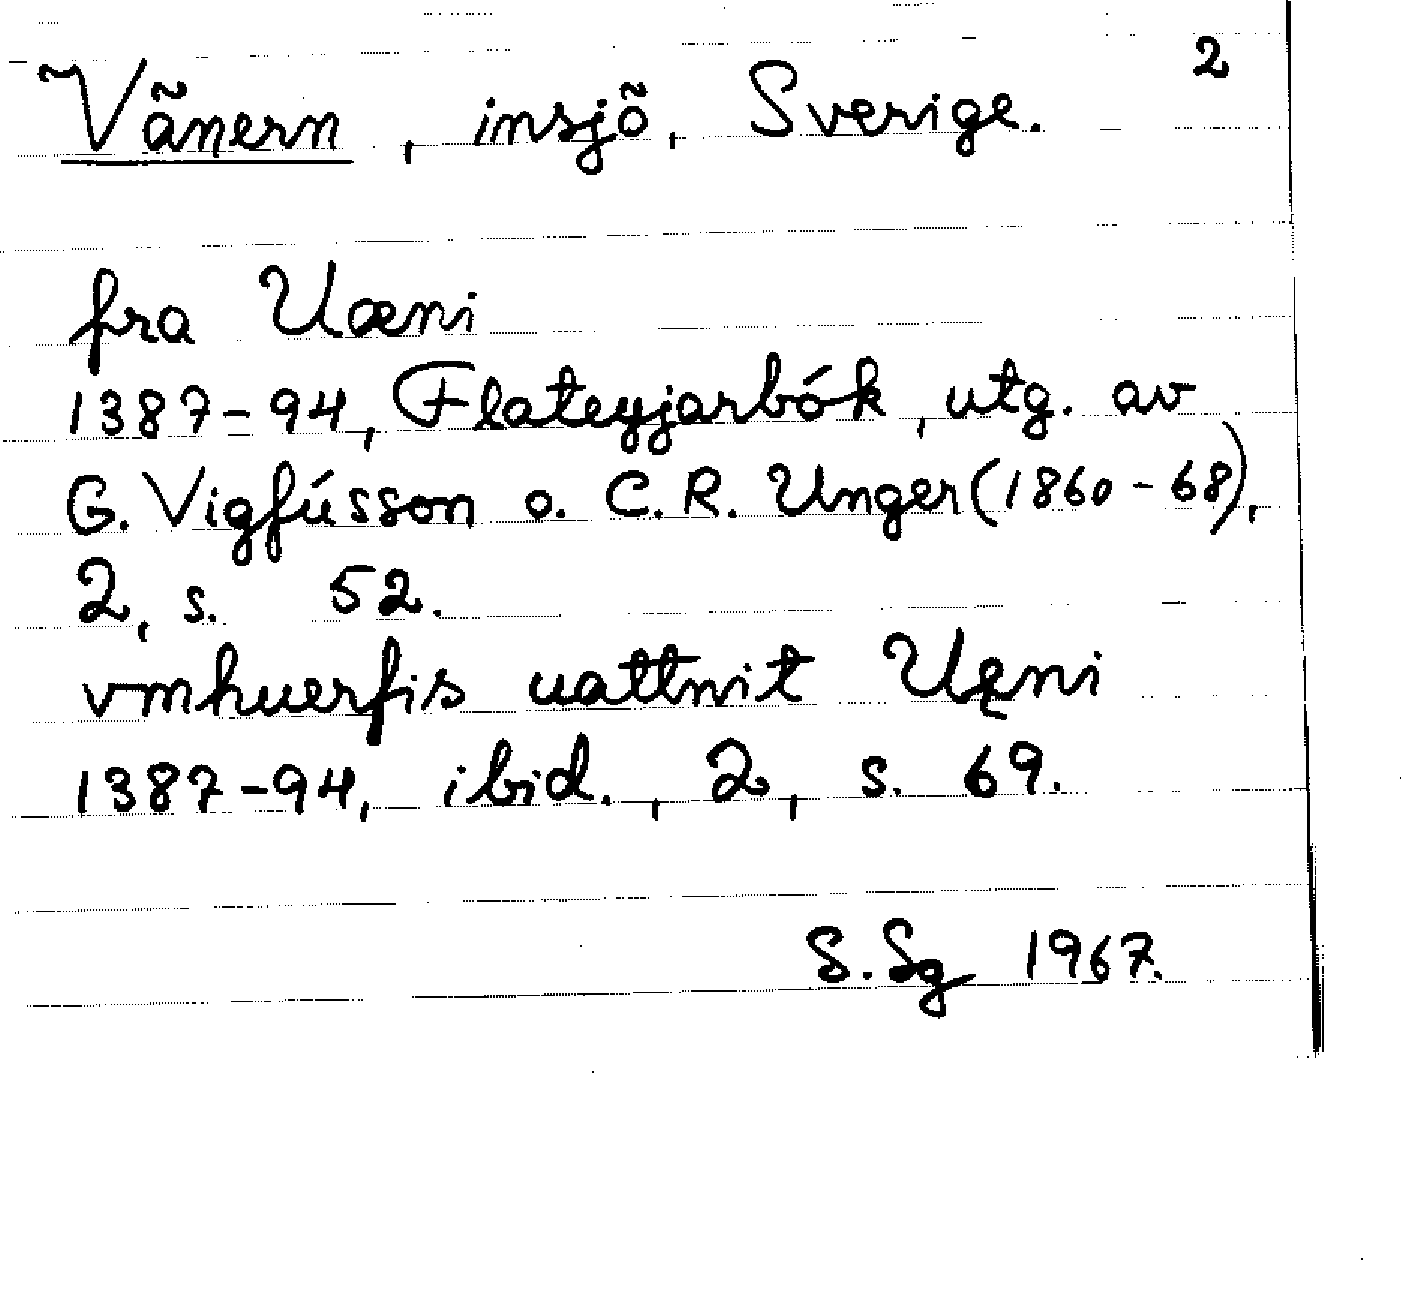 2
Vänern, insjö, Sverige.
fra Uæni
1387-94, Flateyjarbók, utg. av
G. Vigfússon o. C. R. Unger (1860-68),
2, s. 52.
vmhuerfis uattnit Uęni
1387-94, ibid., 2, s. 69.
S. Sg 1967.